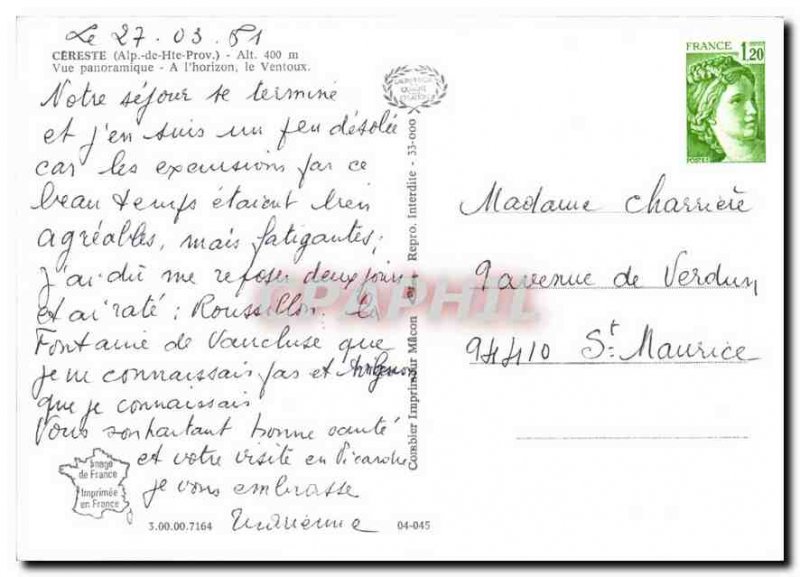 Le 27.03.81
CÉRESTE (Alp.-de-Hte-Prov.) - Alt. 400 m
Vue panoramique - A l'horizon, le Ventoux.
Notre séjour se termine
et j'en suis un peu désolée
car les excursions par ce
beau temps étaient bien
agréables, mais fatigantes;
j'ai dû me reposer deux jours
et ai raté : Roussillon, la
Fontaine de Vaucluse que
je ne connaissais pas et Avignon
que je connaissais
Vous souhaitant bonne santé
et votre visite en Picardie
je vous embrasse
Marienne
Image
de France
Imprimée
en France
3.00.00.7164
04-045
Combier Imprimeur Mâcon
Repro. Interdite - 33-000
CPAPHIL
FRANCE
1,20
POSTES
Madame Charrière
9 avenue de Verdun
94410 St Maurice